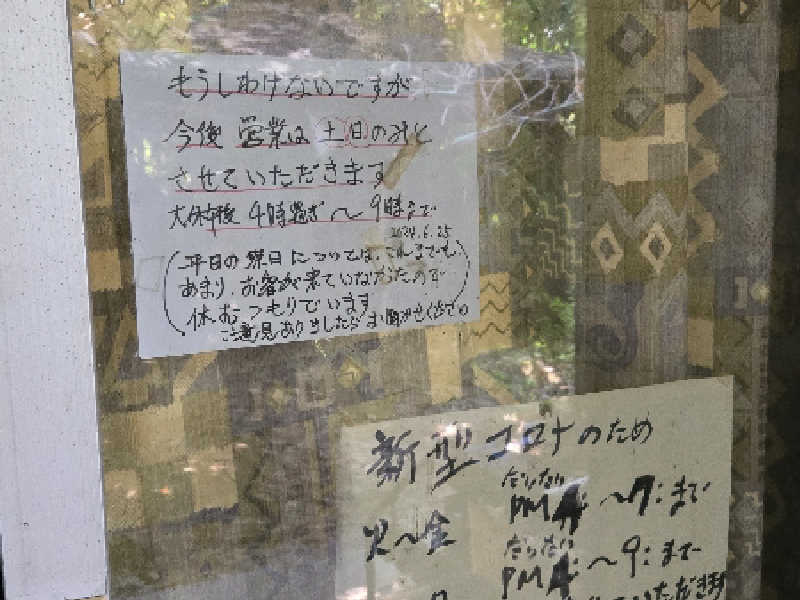 もうしわけないですが
今後 営業は 土 日のみと
させていただきます
大体午後 4時過ぎ〜9時まで
2024.6.25
平日の 祭日については、これまでも
あまり、お客が来ていなかったので
休むつもりでいます
ご意見ありましたらお聞かせください
新型コロナのため
だいたい
PM4:〜7:まで
火〜金
だいたい
PM4:〜9:まで
いただきます